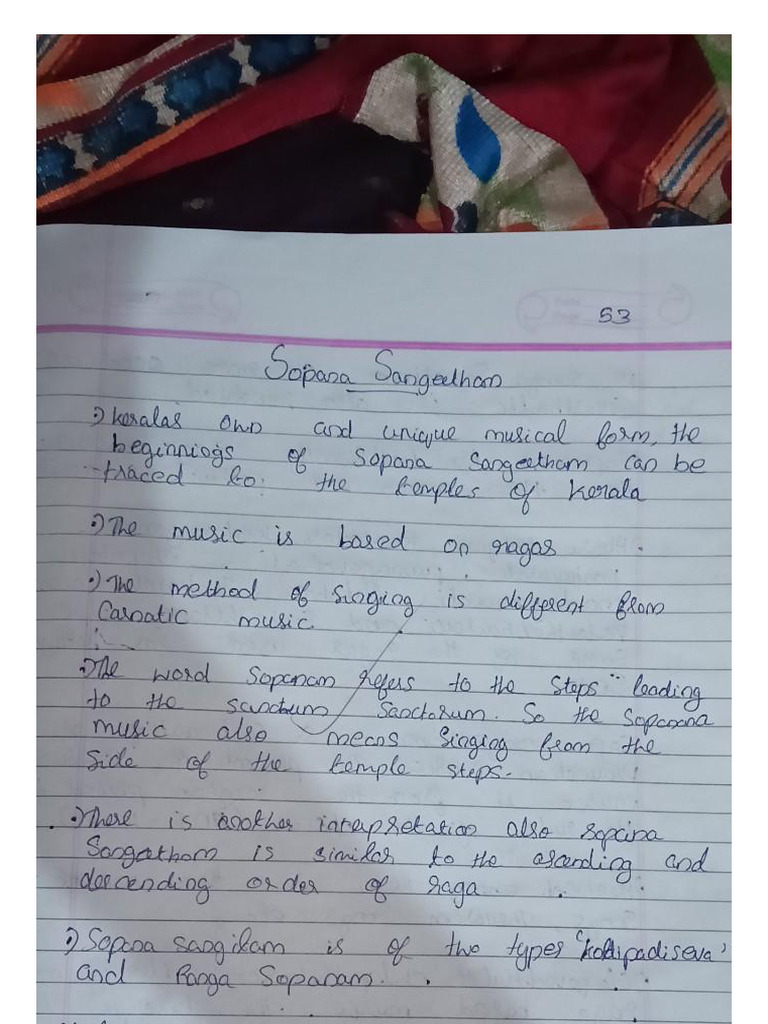 53
Sopana Sangeetham
•) Keralas own and unique musical form, the
beginnings of Sopana Sangeetham can be
traced to the temples of Kerala
•) The music is based on ragas
•) The method of Singing is different from
Carnatic music.
•) The word Sopanam refers to the Steps" leading
to the sanctum Sanctorum. So the Sopanana
music also means Singing from the
Side of the temple steps.
•) There is another interpretation also sopana
Sangeetham is similar to the ascending and
descending order of raga
•) Sopana sangitam is of two types 'kottipadiseva'
and Ranga Sopanam.